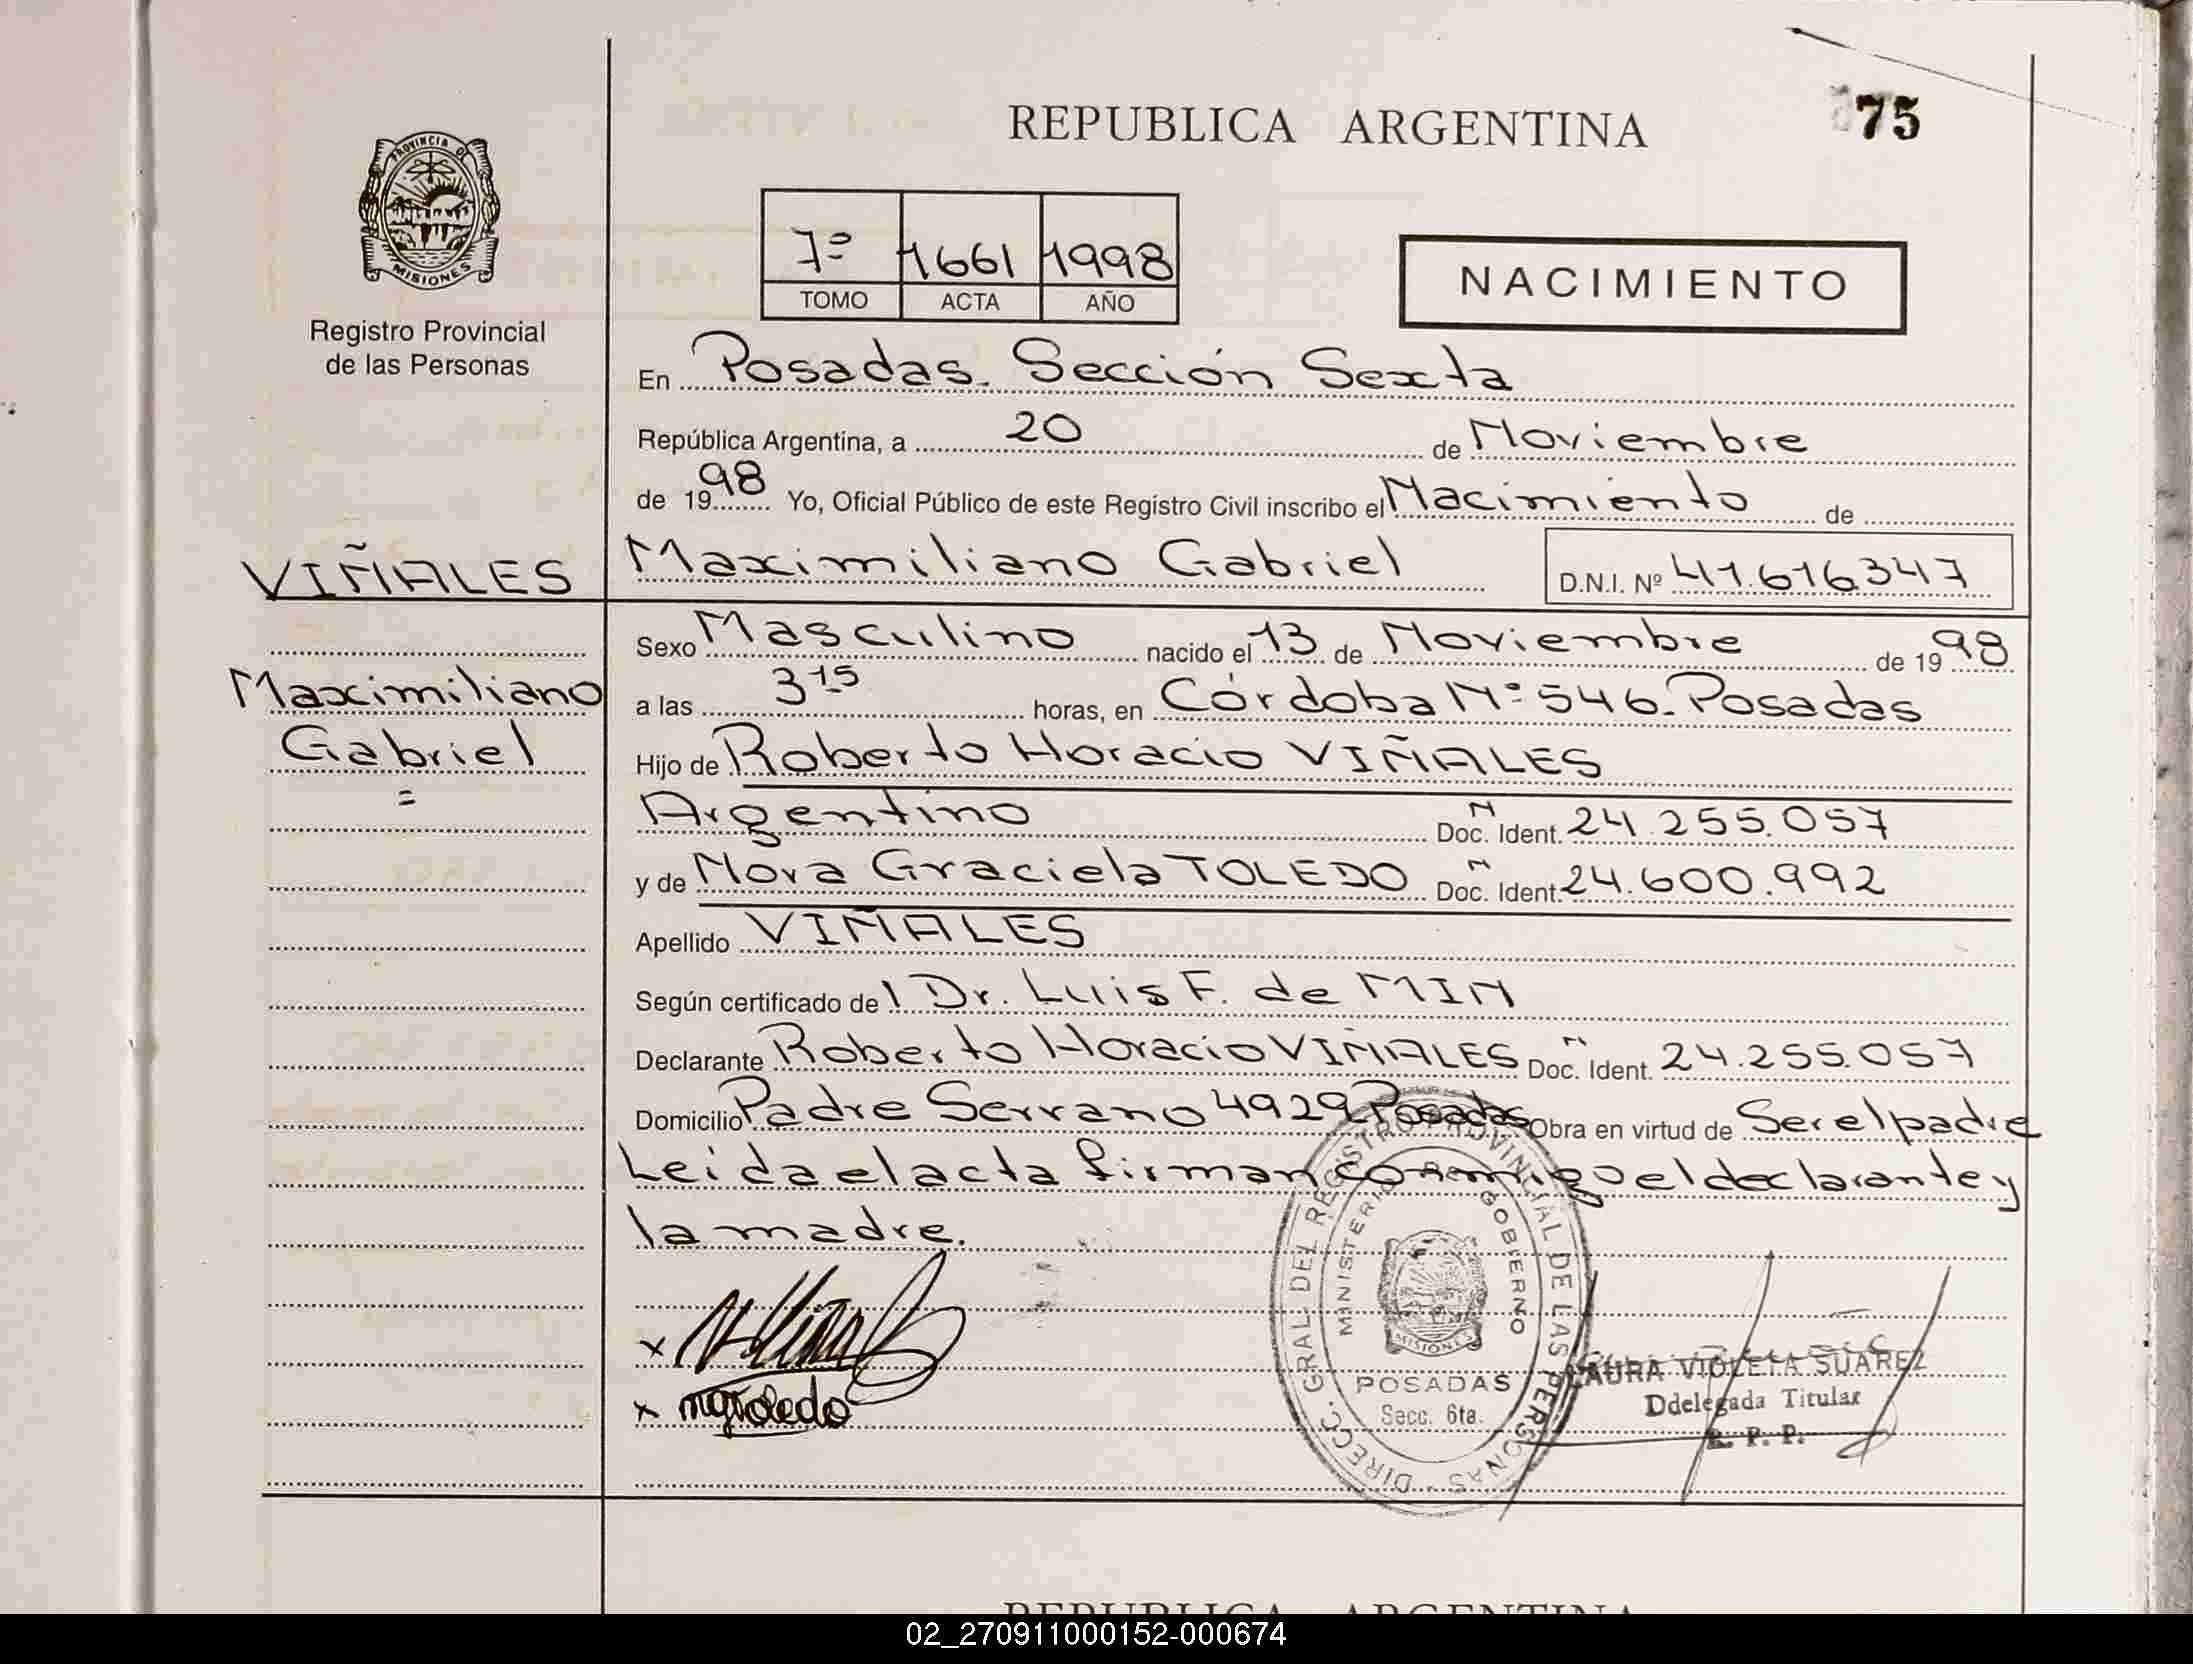 REPUBLICA ARGENTINA
75
PROVINCIA DE
MISIONES
Registro Provincial
de las Personas
7º 1661 1998
TOMO ACTA AÑO
NACIMIENTO
En Posadas. Sección Sexta
República Argentina, a 20 de Noviembre
de 1998 Yo, Oficial Público de este Registro Civil inscribo el Nacimiento de
VIÑALES Maximiliano Gabriel D.N.I. Nº 41.616.347
Sexo Masculino nacido el 13 de Noviembre de 1998
Maximiliano
Gabriel
=
a las 3.15 horas, en Córdoba Nº 546. Posadas
Hijo de Roberto Horacio VIÑALES
Argentino Doc. N Ident. 24.255.057
y de Nora Graciela TOLEDO Doc. N Ident. 24.600.992
Apellido VIÑALES
Según certificado del Dr. Luis F. de MIN
Declarante Roberto Horacio VIÑALES Doc. N Ident. 24.255.057
Domicilio Padre Serrano 4929 Posadas Obra en virtud de Ser el padre
Leida el acta firman conmigo el declarante y
la madre.
x
x ngtoledo
DIRECC. GRAL DEL REGISTRO PROVINCIAL DE LAS PERSONAS
MINISTERIO DE GOBIERNO
MISIONES
POSADAS
Secc. 6ta.
LAURA VIOLETA SUAREZ
Ddelegada Titular
R. P. P.
REPUBLICA ARGENTINA
02_270911000152-000674